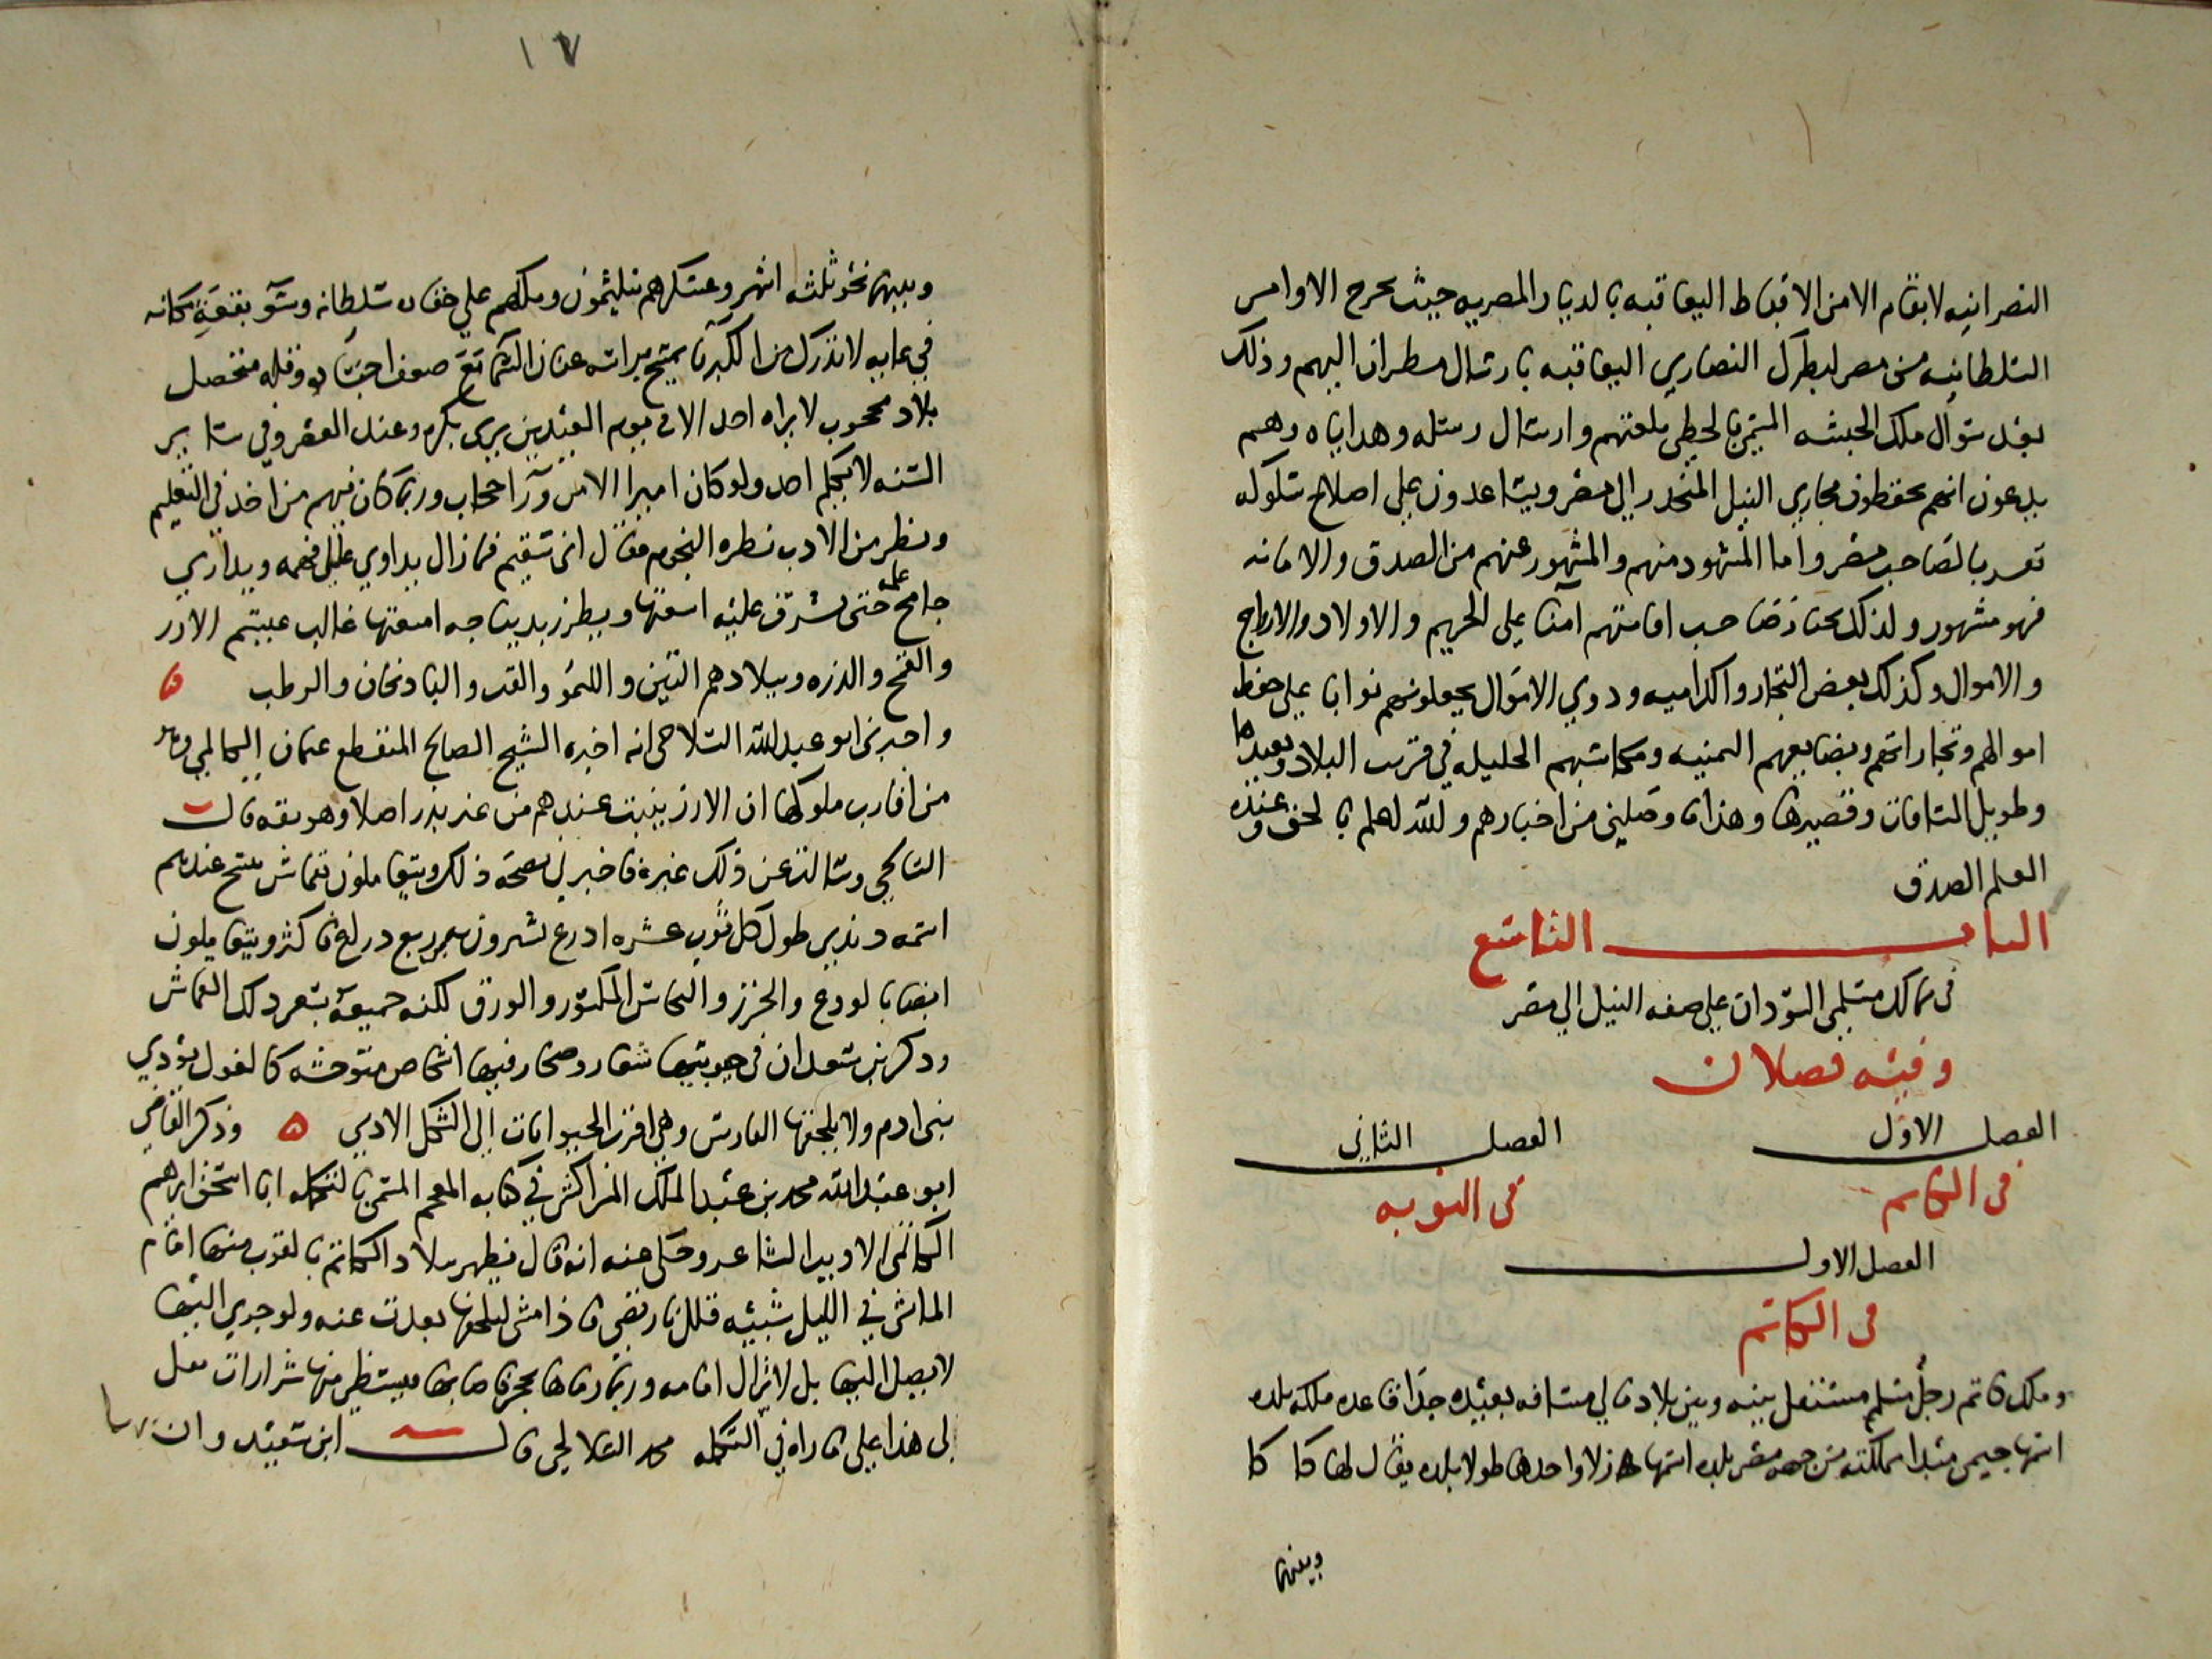 النصرانيه لا تقام الا من الاقباط اليعاقبه بالديار المصريه حيث تخرج الاوامر
السلطانيه من مصر لبطرك النصاري اليعاقبه بارسال مطران اليهم وذلك
بعد سؤال ملك الحبشه المسمى بالحطي بلغتهم وارسال رسله وهداياه وهم
يدعون انهم يحفظون مجاري النيل المنحدر الي مصر ويساعدون علي اصلاح سلوكه
تقربا لصاحب مصر واما المشهود منهم والمشهور عنهم من الصدق والامانه
فهو مشهور ولذلك تختار اصحاب امانتهم امنا علي الحريم والاولاد والارواح
والاموال وكذلك بعض التجار واكراميه وذوي الاموال يجعلونهم نوابا علي حفظ
اموالهم وتجاراتهم وبضايعهم الثمنيه ومكاسبهم الجليله في قرب البلاد وبعيدها
وطويل المسافات وقصيرها وهذا ما وصلني من اخبارهم والله اعلم بالحق وعنده
العلم الصدق
الباب الثامن
في ممالك مسلمي السودان علي ضفه النيل الي مصر
وفيه فصلان
الفصل الاول الفصل الثاني
في الكانم في النوبه
الفصل الاول
في الكانم
وملك كانم رجل مسلم مستقل بينه وبين بلاد مالي مسافه بعيده جدا قاعده ملكه بلده
اسمها جيمي مبدا مملكته من جهه مصر بلده اسمها زلا واخرها طولا بلده يقال لها كاكا
وبينهما
١٧
وبينهما نحو ثلثه اشهر وعسكرهم يتلثمون وملكهم علي حقاره سلطانه وسو بقعة مكانه
في غايه لا تدرك من الكبريا يمسح براسه عنان السما مع ضعف اجناده وقله متحصل
بلاده محجوب لا يراه احد الا في يوم العيدين يري بكره وعند العصر وفي ساير
السنه لا يكلم احد ولو كان اميرا الا من ورآ حجاب وربما كان فيهم من اخذ في التعليم
ونظر من الادب نظره النجوم فقال اني سقيم فما زال يداوي عليل فهمه ويداري
جامح علمه حتى تشرق عليه اشعتها ويطرز بديباجه امتعتها غالب عيشهم الارز
والقمح والذره وببلادهم التين والليمو والقت والبادنجان والرطب
واخبرني ابو عبد الله السلالحي انه اخبره الشيخ الصالح المنقطع عثمان الكانمي وهو
من اقارب ملوكها ان الارز ينبت عندهم من غير بذر اصلا وهو ثقه قال
السلالحي وسالت عن ذلك غيره فاخبرني بصحة ذلك ويتعاملون بقماش ينسج عندهم
اسمه دندي طول كل ثوب عشره اذرع يشترون من ربع ذراع فاكثر ويتعاملون
ايضا بالودع والخرز والنحاس المكسور والورق لكنه جميعه يسعر بذلك القماش
وذكر ابن سعيد ان في جنوبيها شعار وصحار فيها اشخاص متوحشه كالغول تؤذي
بني ادم ولا يلحقها الفارس وهي اقرب الحيوانات الي الشكل الادمي وذكر القاضي
ابو عبد الله محمد بن عبد الملك المراكشي في كتابه المعجم المسمى بالتكمله ابا اسحق ابراهيم
الكانمي الاديب الشاعر وحكي عنه انه قال يظهر ببلاد الكانم بالقرب منها امام
الماشي في الليل شبيه قلل نار تضي فاذا مشي ليلحقها بعدت عنه ولو جري اليها
لا يصل اليها بل لا تزال امامه وربما رماها بحجر فاصابها فيتشظي منها شرارات
الي هذا علي ما راه في التكمله محمد السلالحي قال ابن سعيد وان